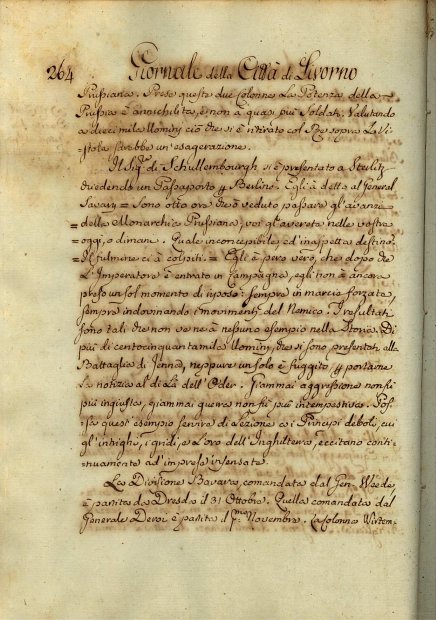 264 Giornale della Città di Livorno
Prussiana. Prese queste due Colonne La Potenza della
Prussia è annichilita, e non à quasi più Soldati. Valutando
a diecimila Uomini ciò che si è ritirato col Re sopra La Vi-
stola sarebbe un'esagerazione.
Il Sig.r di Schullembourgh si è presentato a Sterlitz
chiedendo un Passaporto p Berlino. Egli à detto al General
Savary = Sono otto ore che ò veduto passare gl'avanzi
= della Monarchia Prussiana, voi gl'averete nelle vostre
= oggi, o dimani. Quale inconcepibile, ed inaspettato destino.
= Il fulmine ci à colpiti. = Egli è pero vero, che dopo che
L'Imperatore è entrato in Campagna, egli non à ancora
preso un sol momento di riposo: sempre in marcie forzate,
sempre indovinando i movimenti del Nemico. I resultati
sono tali che non ve ne à nessuno esempio nella Storia. Di
più di centocinquantamila Uomini, che si sono presentati alla
Battaglia di Jenna, neppure un solo è fuggito p portarne
La notizia al di là dell'Oder. Giammai aggressione non fù
più ingiusta, giammai guerra non fù più intempestiva. Pos-
sa quest' esempio servire di Lezione a i Principi deboli, cui
gl'intrighi, i gridi, e l'oro dell'Inghilterra, eccitano conti-
nuamente ad'imprese insensate.
La Divisione Bavara comandata dal Gen. Wrede
è partita da Dresda il 31 Ottobre. Quella comandata dal
Generale Deroi è partita il p.mo Novembre. La Colonna Wirtem-